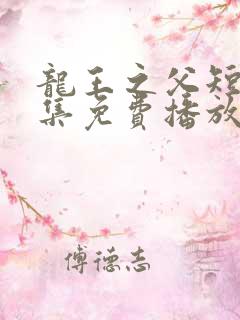 龍王之父短
集免費播放
傅德志